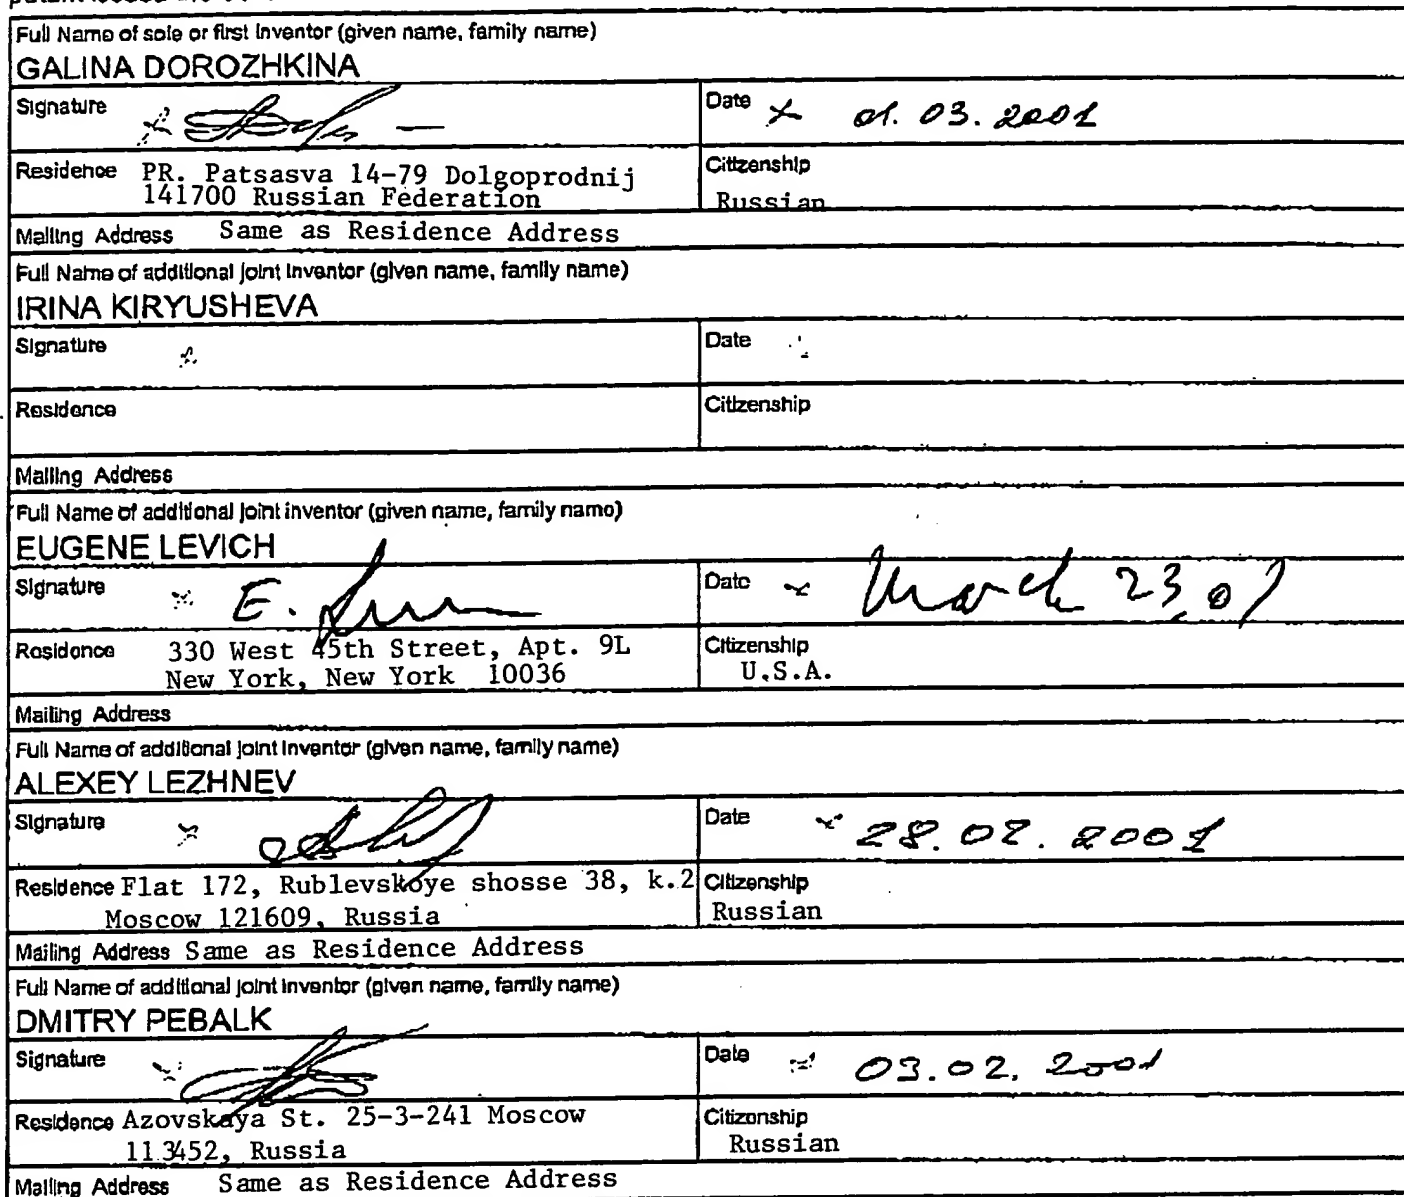 Full Name of sole or first Inventor (given name, family name)
GALINA DOROZHKINA
Signature
Date x 01. 03. 2001
Residence PR. Patsasva 14-79 Dolgoprodnij
141700 Russian Federation
Citizenship
Russian
Mailing Address Same as Residence Address
Full Name of additional joint Inventor (given name, family name)
IRINA KIRYUSHEVA
Signature
Date
Residence
Citizenship
Mailing Address
Full Name of additional joint inventor (given name, family name)
EUGENE LEVICH
Signature x E.
Date x March 23, 01
Residence 330 West 45th Street, Apt. 9L
New York, New York 10036
Citizenship
U.S.A.
Mailing Address
Full Name of additional joint Inventor (given name, family name)
ALEXEY LEZHNEV
Signature x
Date x 28. 02. 2001
Residence Flat 172, Rublevskoye shosse 38, k.2
Moscow 121609, Russia
Citizenship
Russian
Mailing Address Same as Residence Address
Full Name of additional joint Inventor (given name, family name)
DMITRY PEBALK
Signature x
Date x 03.02. 2001
Residence Azovskaya St. 25-3-241 Moscow
113452, Russia
Citizenship
Russian
Mailing Address Same as Residence Address